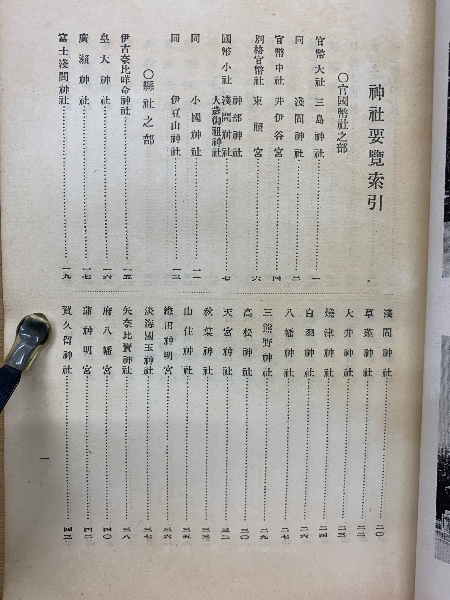 神社要覽索引
〇官國幣社之部
官幣大社 三島神社…一
同 淺間神社…二
官幣中社 井伊谷宮…四
別格官幣社 東照宮…六
國幣小社 神部神社 淺間神社 大歲御祖神社…七
同 小國神社…一一
同 伊豆山神社…一三
〇縣社之部
伊古奈比咩命神社…一五
皇大神社…一六
廣瀨神社…一七
富士淺間神社…一九
淺間神社…二〇
草薙神社…二一
大井神社…二三
燒津神社…二四
白羽神社…二六
八幡神社…二七
三熊野神社…二九
高松神社…三〇
天宮神社…三二
秋葉神社…三三
山住神社…三五
濱田神明宮…三六
淡海國玉神社…三七
矢奈比賣神社…三八
府八幡宮…四〇
蒲神明宮…四二
賀久留神社…四三
一